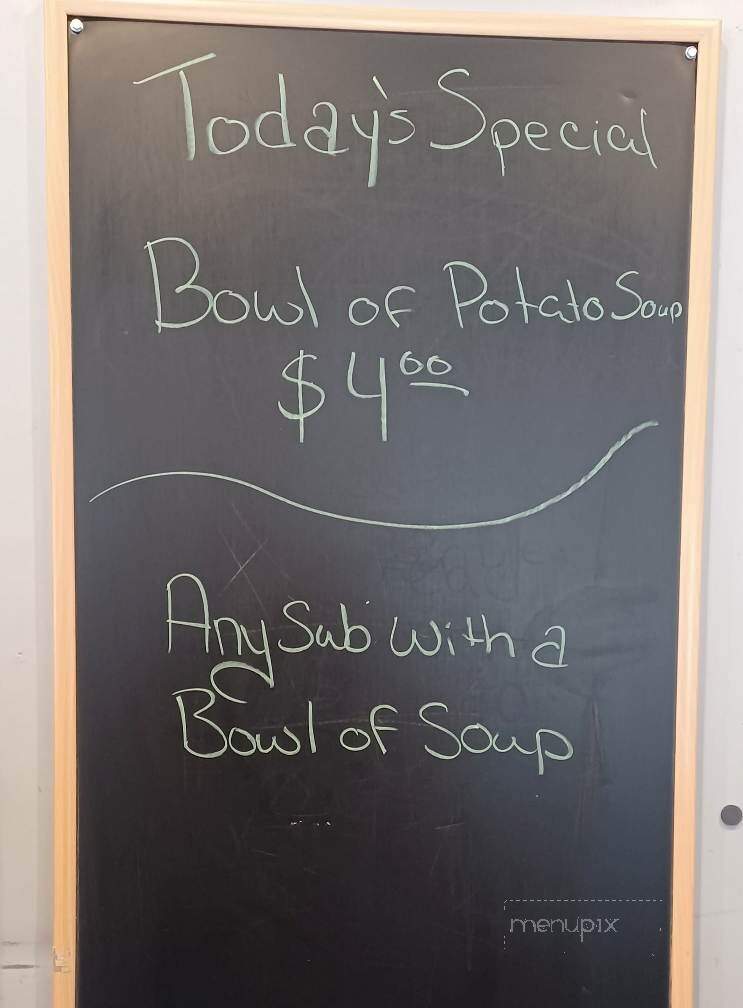 Today's Special
Bowl of Potato Soup
$4.00
Any Sub With a
Bowl of Soup
menupix